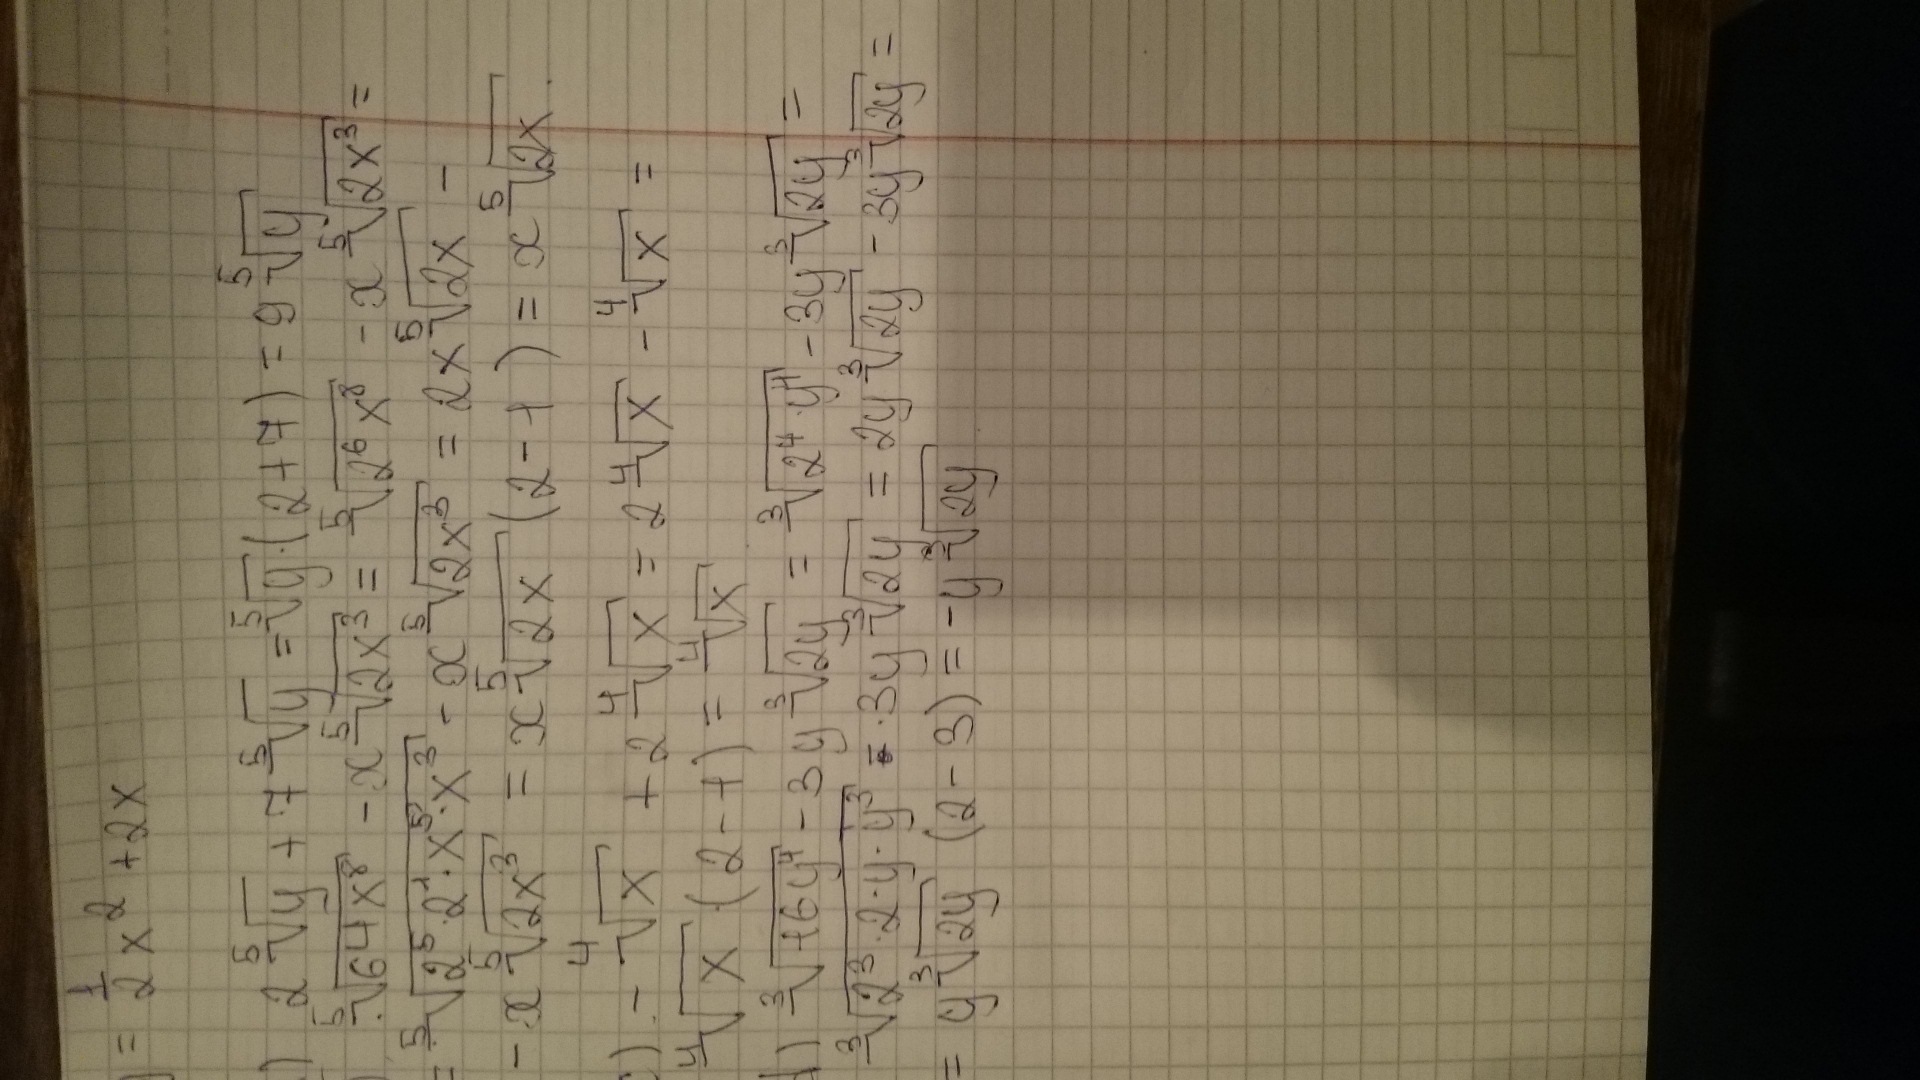 ) = 1/2 x² + 2x
) 2⁵√y + 7⁵√y = ⁵√y · (2+7) = 9⁵√y
) ⁵√64x⁸ - x⁵√2x³ = ⁵√2⁶x⁸ - x⁵√2x³ =
= ⁵√2⁵·2¹·x⁵·x³ - x⁵√2x³ = 2x⁵√2x -
- x⁵√2x³ = x⁵√2x (2-1) = x⁵√2x.
) - ⁴√x + 2⁴√x = 2⁴√x - ⁴√x =
⁴√x · (2-1) = ⁴√x
) ³√16y⁴ - 3y³√2y = ³√2⁴·y⁴ - 3y³√2y =
³√2³·2·y·y³ - 3y³√2y = 2y³√2y - 3y³√2y =
= y³√2y (2-3) = -y³√2y